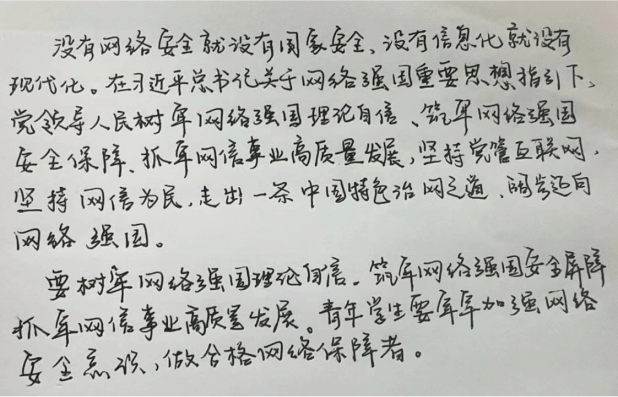 没有网络安全就没有国家安全、没有信息化就没有
现代化。在习近平总书记关于网络强国重要思想指引下、
党领导人民树牢网络强国理论自信、筑牢网络强国
安全保障、抓牢网信事业高质量发展,坚持党管互联网,
坚持网信为民,走出一条中国特色治网之道、阔步迈向
网络强国。
要树牢网络强国理论自信、筑牢网络强国安全屏障
抓牢网信事业高质量发展。青年学生要牢牢加强网络
安全意识,做合格网络保障者。